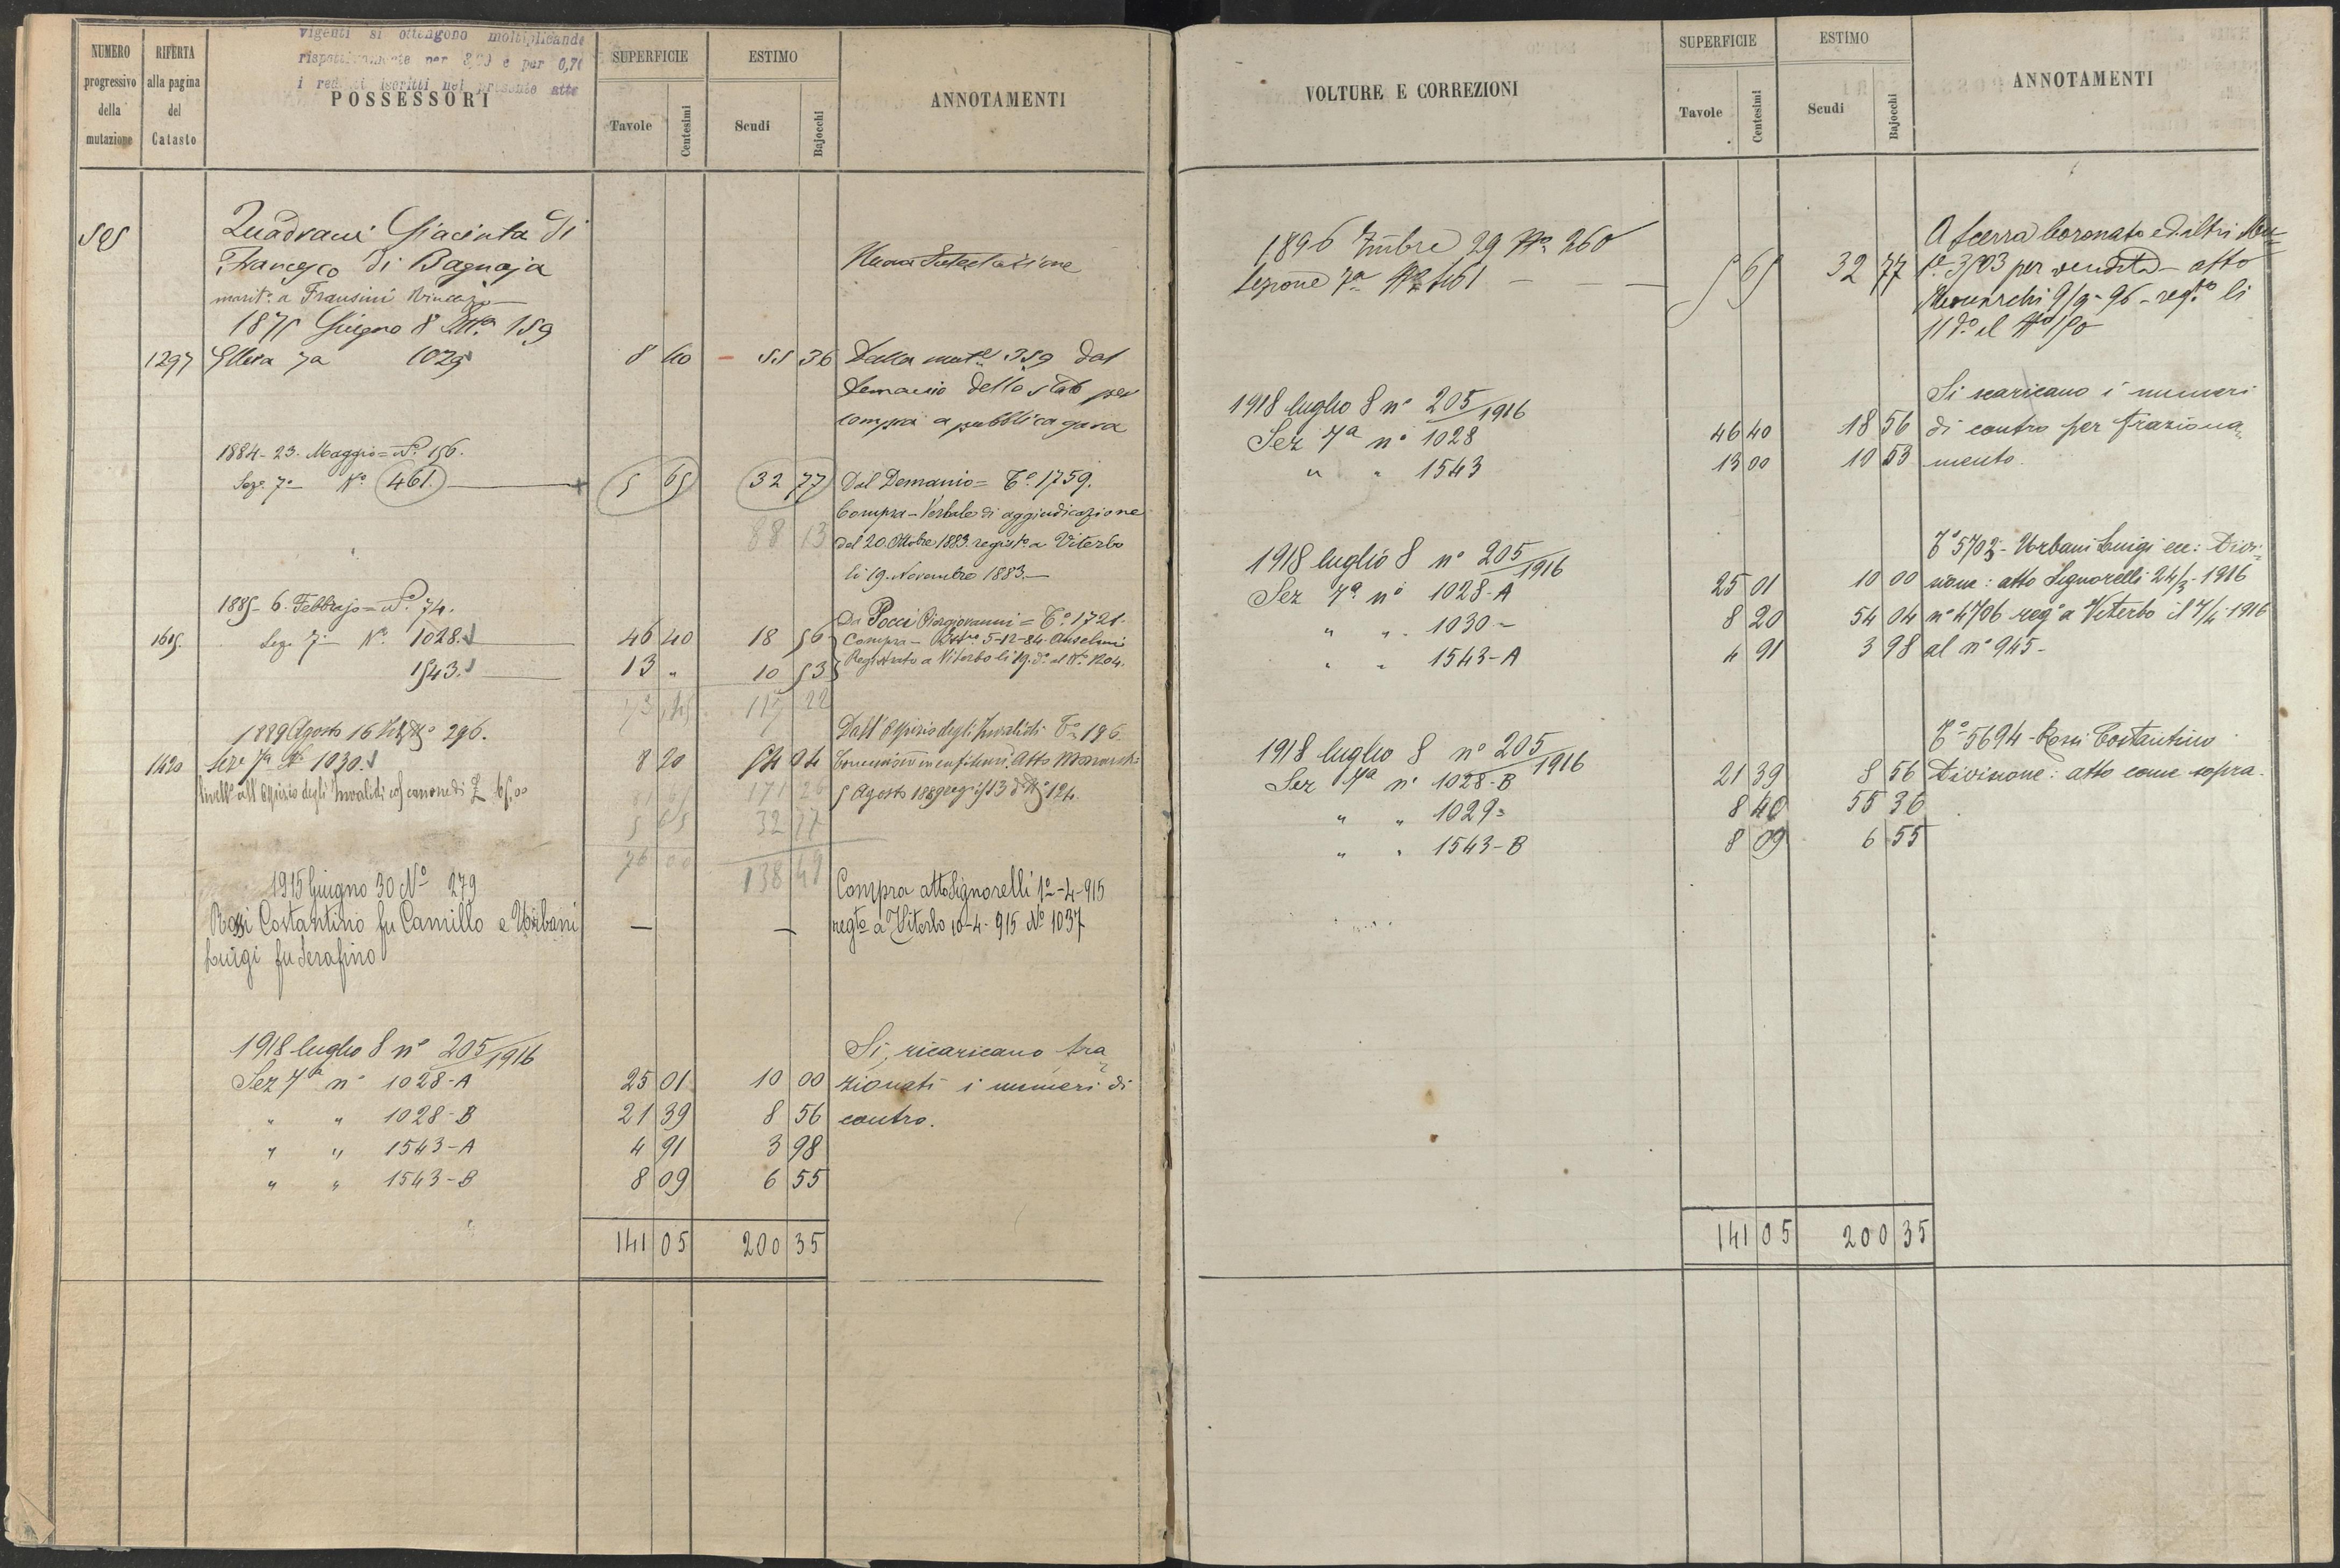 vigenti si ottengono moltiplicando
rispettivamente per 3,20 e per 0,70
i redditi iscritti nel presente atto
NUMERO progressivo della mutazione
RIFERTA alla pagina del Catasto
POSSESSORI
SUPERFICIE
Tavole Centesimi
ESTIMO
Scudi Bajocchi
ANNOTAMENTI
595 Quadrani Giacinta di
Francesco di Bagnaja
Nuova Intestazione
marit.a a Fransini Vincenzo
1875 Giugno 8 159
1297 Ellera 7a 1029 8 40 - 55 36 Dalla 359 dal
Demanio dello Stato per
compra a pubblica gara
1884 - 23. Maggio = N.o 156.
Sez.e 7.a N.o 461. 5 65 32 77 Dal Demanio = T.o 1759.
Compra - Verbale di aggiudicazione
88 13 del 20. Ottobre 1883. regist.o a Viterbo
li 19. Novembre 1883.
1885 - 6. Febbrajo = N.o 74.
Da Pocci Piergiovanni = T.o 1721.
1615. Sez.e 7.a N.o 1028. 46 40 18 56 Compra - 5-12-84. Anselmi
1543. 13 " 10 53 Registrato a Viterbo li 19. d.o al N.o 1204.
73 45 117 22
1889 Agosto 16 296.
Dall' Ospizio degli Invalidi T.o 196
1420 Sez.e 7a N.o 1030. 8 20 54 04 Atto
livell.o all' Ospizio degli Invalidi canone di £ 65.00
81 65 171 26 5 Agosto 1889 13 124.
5 65 32 77
76 00 138 49
1915 Giugno 30 No 279
Compra atto Signorelli 1o-4-915
Rossi Costantino fu Camillo e Urbani — — regto a Viterbo 10-4-915 No 1037
Luigi fu Serafino
1918 luglio 8 n° 205/1916
Si ricaricano fra
Sez 7a n° 1028-A 25 01 10 00 zionati i numeri di
" " 1028-B 21 39 8 56 contro.
" " 1543-A 4 91 3 98
" " 1543-B 8 09 6 55
141 05 200 35
VOLTURE E CORREZIONI
SUPERFICIE
Tavole Centesimi
ESTIMO
Scudi Bajocchi
ANNOTAMENTI
A Scerra Coronato ed altri
1896 7mbre 29 No 260
Sezione 7a No 461 — — — 5 65 32 77 3703 per vendita - atto
9/9-96 - reg.to li
11 d.o al No 150
Si scaricano i numeri
1918 luglio 8 n° 205/1916
Sez 7a n° 1028 46 40 18 56 di contro per fraziona=
" " 1543 13 00 10 53 mento.
T° 5702 - Urbani Luigi ecc: Divi-
1918 luglio 8 n° 205/1916
Sez 7a n° 1028-A 25 01 10 00 sione: atto Signorelli 24/3-1916
" " 1030 - 8 20 54 04 n° 4706 reg° a Viterbo il 7/4 1916
" " 1543-A 4 91 3 98 al n° 945-
T° 5694 - Rossi Costantino
1918 luglio 8 n° 205/1916
Sez 7a n° 1028-B 21 39 8 56 Divisione: atto come sopra.
" " 1029= 8 40 55 36
" " 1543-B 8 09 6 55
141 05 200 35